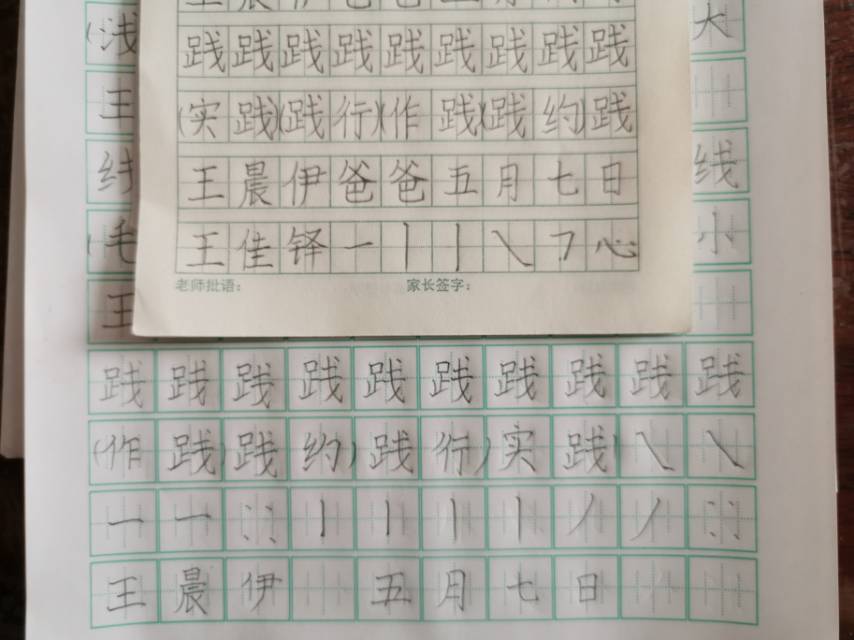 践践践践践践践践践
(实践)(践行)(作践)(践约)践
王晨伊爸爸五月七日
王佳铎一丨丨㇏㇕心
老师批语: 家长签字:
(浅 大
王
线 线
(毛 小
王
践践践践践践践践践践
(作践)践约)践行)实践)㇏㇏
一一丨丨丨丨丿丿
王晨伊 五月七日